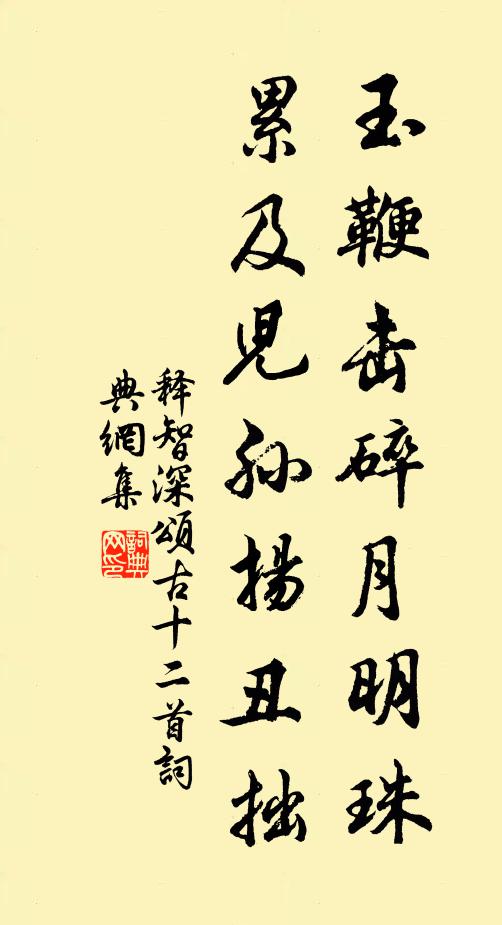 玉鞭击碎月明珠
累及児孙揚丑拙
释智深頌古十二首詞
典網集
詞典网印